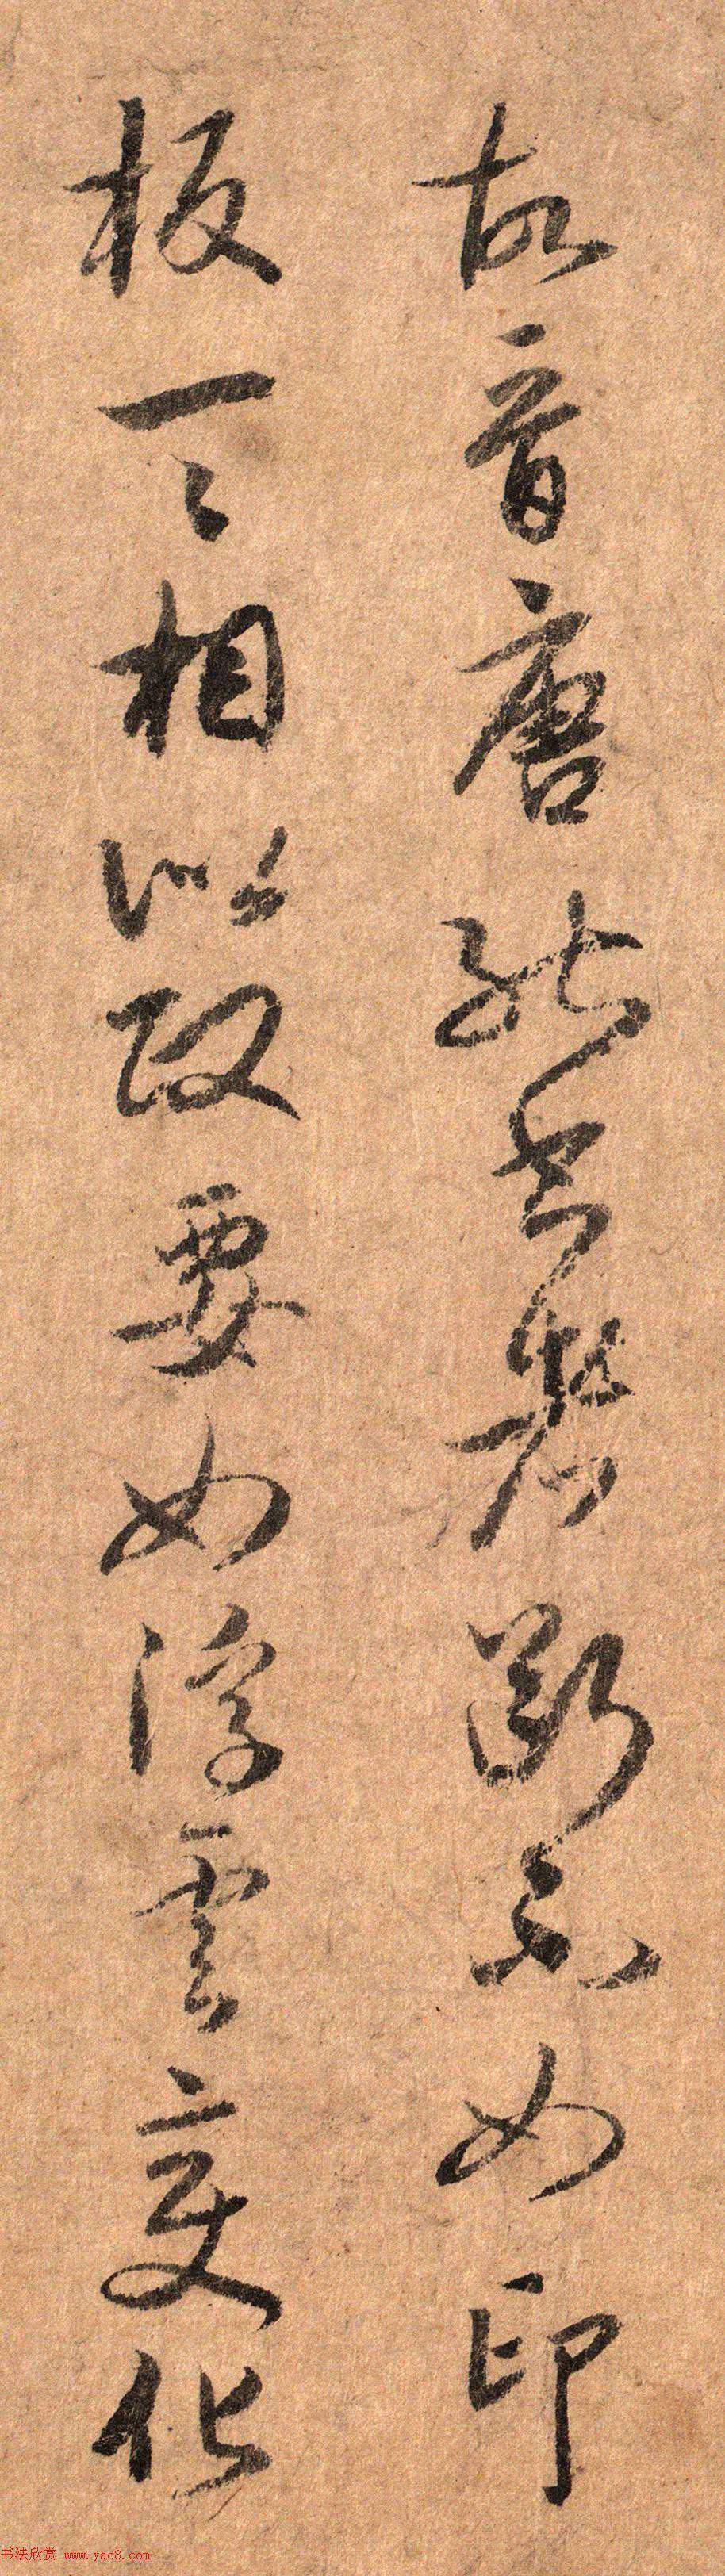 故晋唐能书者断不如印
板一一相似政要如浮云变化
书法欣赏 www.yac8.com